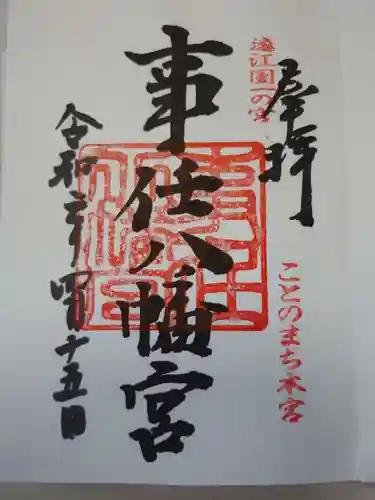 奉拝
遠江国一の宮
ことのまち本宮
事任八幡宮
令和三年四月十五日